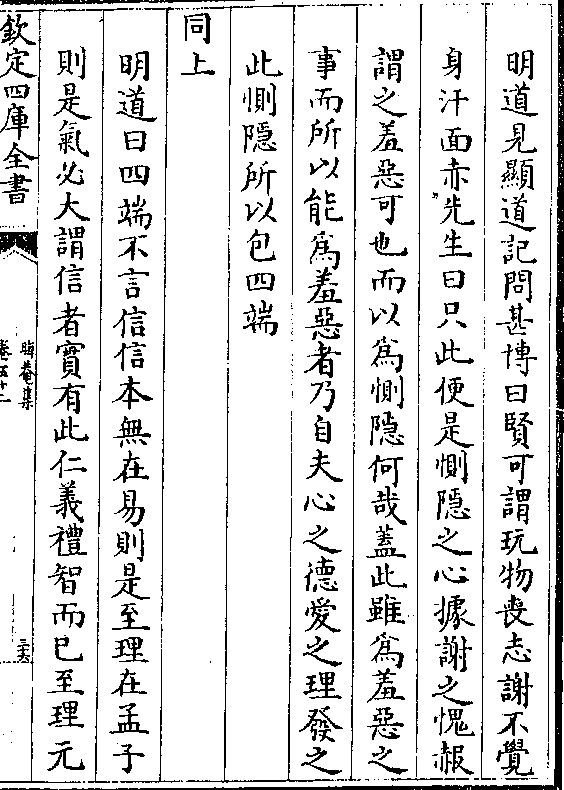 明道見顯道記問甚博曰賢可謂玩物喪志謝不覺
身汗面赤先生曰只此便是惻隠之心據謝之愧赧
謂之羞惡可也而以為惻隠何哉蓋此雖為羞惡之
事而所以能為羞惡者乃自夫心之德愛之理發之
此惻隠所以包四端
同上
明道曰四端不言信信本無在易則是至理在孟子
則是氣必大謂信者實有此仁義禮智而已至理元
欽定四庫全書
晦菴集
卷五十二